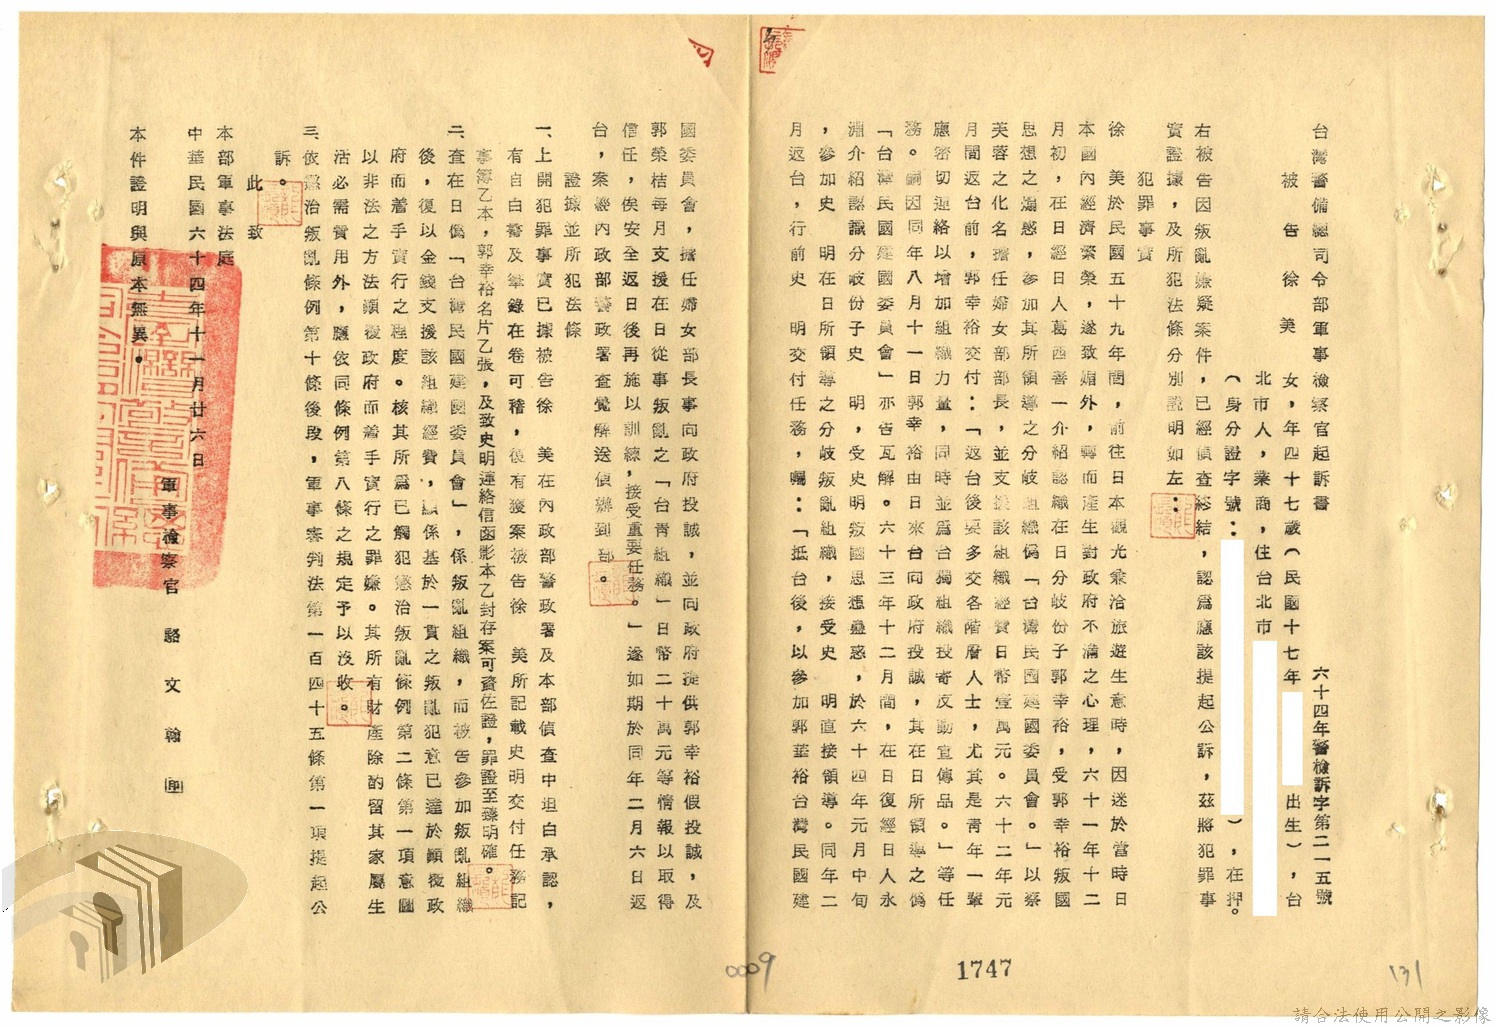 台灣警備總司令部軍事檢察官起訴書
六十四年警檢訴字第二一五號
被告 徐 美 女，年四十七歲（民國十七年 出生），台
北市人，業商，住台北市
（身分證字號： ），在押。
右被告因叛亂嫌疑案件，已經偵查終結，認為應該提起公訴，茲將犯罪事
實證據，及所犯法條分別說明如左：
犯罪事實
徐 美於民國五十九年間，前往日本觀光乘洽旅遊生意時，因迷於當時日
本國內經濟繁榮，遂致媚外，轉而產生對政府不滿之心理，六十一年十二
月初，在日經日人葛西善一介紹認識在日分岐份子郭幸裕，受郭幸裕叛國
思想之煽惑，參加其所領導之分岐組織偽「台灣民國建國委員會。」以蔡
芙蓉之化名擔任婦女部部長，並支援該組織經費日幣壹萬元。六十二年元
月間返台前，郭幸裕交付：「返台後要多交各階層人士，尤其是青年一輩
應密切連絡以增加組織力量，同時並為台獨組織投寄反動宣傳品。」等任
務。嗣因同年八月十一日郭幸裕由日來台向政府投誠，其在日所領導之偽
「台灣民國建國委員會」亦告瓦解。六十三年十二月間，在日復經日人永
淵介紹認識分岐份子史 明，受史明叛國思想蠱惑，於六十四年元月中旬
，參加史 明在日所領導之分岐叛亂組織，接受史 明直接領導。同年二
月返台，行前史 明交付任務，囑：「抵台後，以參加郭幸裕台灣民國建
國委員會，擔任婦女部長事向政府投誠，並向政府提供郭幸裕假投誠，及
郭榮桔每月支援在日從事叛亂之「台青組織」日幣二十萬元等情報以取得
信任，俟安全返日後再施以訓練，接受重要任務。」遂如期於同年二月六日返
台，案經內政部警政署查覺解送偵辦到部。
證據並所犯法條
一、上開犯罪事實已據被告徐 美在內政部警政署及本部偵查中坦白承認，
有自白書及筆錄在卷可稽，復有獲案被告徐 美所記載史明交付任務記
事簿乙本，郭幸裕名片乙張，及致史明連絡信函影本乙封存案可資佐證，罪證至臻明確。
二、查在日偽「台灣民國建國委員會」，係叛亂組織，而被告參加叛亂組織
後，復以金錢支援該組織經費，顯係基於一貫之叛亂犯意已達於顛覆政
府而着手實行之程度。核其所為已觸犯懲治叛亂條例第二條第一項意圖
以非法之方法顛覆政府而着手實行之罪嫌。其所有財產除酌留其家屬生
活必需費用外，應依同條例第八條之規定予以沒收。
三、依懲治叛亂條例第十條後段，軍事審判法第一百四十五條第一項提起公
訴。
此 致
本部軍事法庭
中華民國六十四年十一月廿六日
軍事檢察官 駱文翰 印
本件證明與原本無異。
0009
1747
131
請合法使用公開之影像